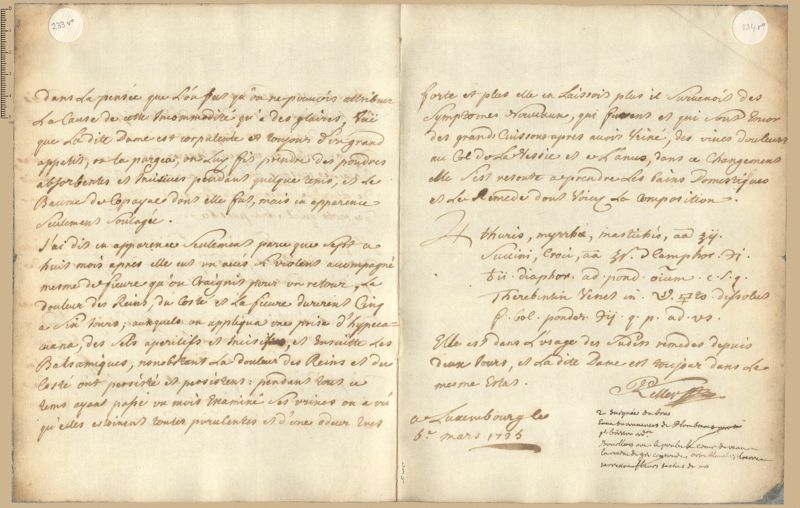 233 vº
dans La pensée que L'on fut qu'on ne pouvoit attribuer
La Cause de cette Incommodité qu'a des glaires, Veü
que La dite Dame est corpulente et toujours d'un grand
appetit, on la purgea, on Luy fit prendre des poudres
absorbentes et Incisives pendant quelque tems, et Le
Baume de Copayae dont elle fut, mais en apparence
seulement soulagée.
J'ai dit en apparence seulement parce que sept a
huit mois apres elle eut un accés si violent accompagné
mesme de fievre qu'on Craignit pour un retour, La
douleur des Reins, du Costé et La fievre durerent Cinq
a six jours; auxquels on appliqua une prise d'hypeca-
cuana, des sels aperitifs et Incisifs, et Ensuitte Les
Balsamiques, nonobstant La douleur des Reins et du
Costé ont persisté et persistent: pendant tout ce
tems ayant passé un mois Examiné ses urines on a vu
qu'elles estoient toutes purulentes et d'une odeur tres
234 rº
forte et plus elle en Laissoit plus il survenoit des
symptomes nouveaux, qui furent et qui sont Encor
des grands Cuissons apres avoir Uriné, des vives douleurs
au Col de La Vessie et a L'anus, dans ce Changement
elle s'est restente a prendre Les bains Domestiques
et Le Remede dont Voicy La Composition.
thuris, myrrhæ, mastichis, aã ʒij.
Succini, Croci, aã ʒß. Camphor. Ɔj.
diaphor. ad pond. oium. c. s. q.
Therebintin Venet in dissolut
f. bol. ponder. Ɔij. q. p. ad. us.
Elle est dans L'usage des susdits remedes depuis
deux jours, et La dite Dame est toujour dans Le
mesme Estat.
Keller
a Luxembourg le
6e. mars 1725
2 saignées du bras